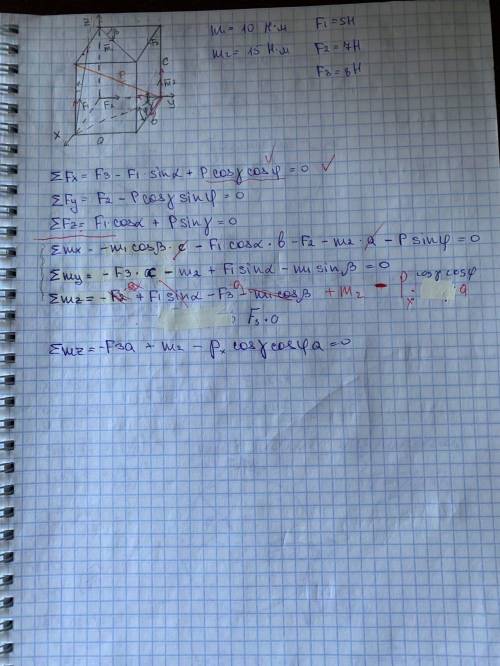 m₁ = 10 Н·м F₁ = 5Н
m₂ = 15 Н·м F₂ = 7Н
F₃ = 8Н
Z
P
C
F₁
F₂
X
Y
a
ΣFx = F₃ - F₁·sinα + P cosγ cosφ = 0
ΣFy = F₂ - P cosγ sinφ = 0
ΣFz = F₁·cosα + P sinγ = 0
Σmx = -m₁ cosβ · c - F₁ cosα · b - F₂ - m₂ · a - P sinφ = 0
Σmy = -F₃ · c - m₂ + F₁ sinα - m₁ sinβ = 0
Σmz = + F₁ sinα - F₃ · a - m₁ cosβ + m₂ - Px cosγ cosφ a
F₃ · 0
Σmz = -F₃a + m₂ - Px cosγ cosφ a = 0